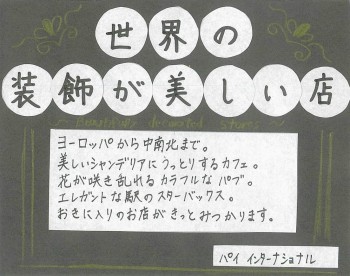 世界の
装飾が美しい店
～ beautifully decorated stores ～
ヨーロッパから中南北まで。
美しいシャンデリアにうっとりするカフェ。
花が咲き乱れるカラフルなパブ。
エレガントな駅のスターバックス。
おきに入りのお店がきっとみつかります。
パイ インターナショナル